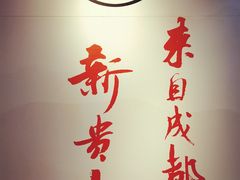 来自成都
新贵